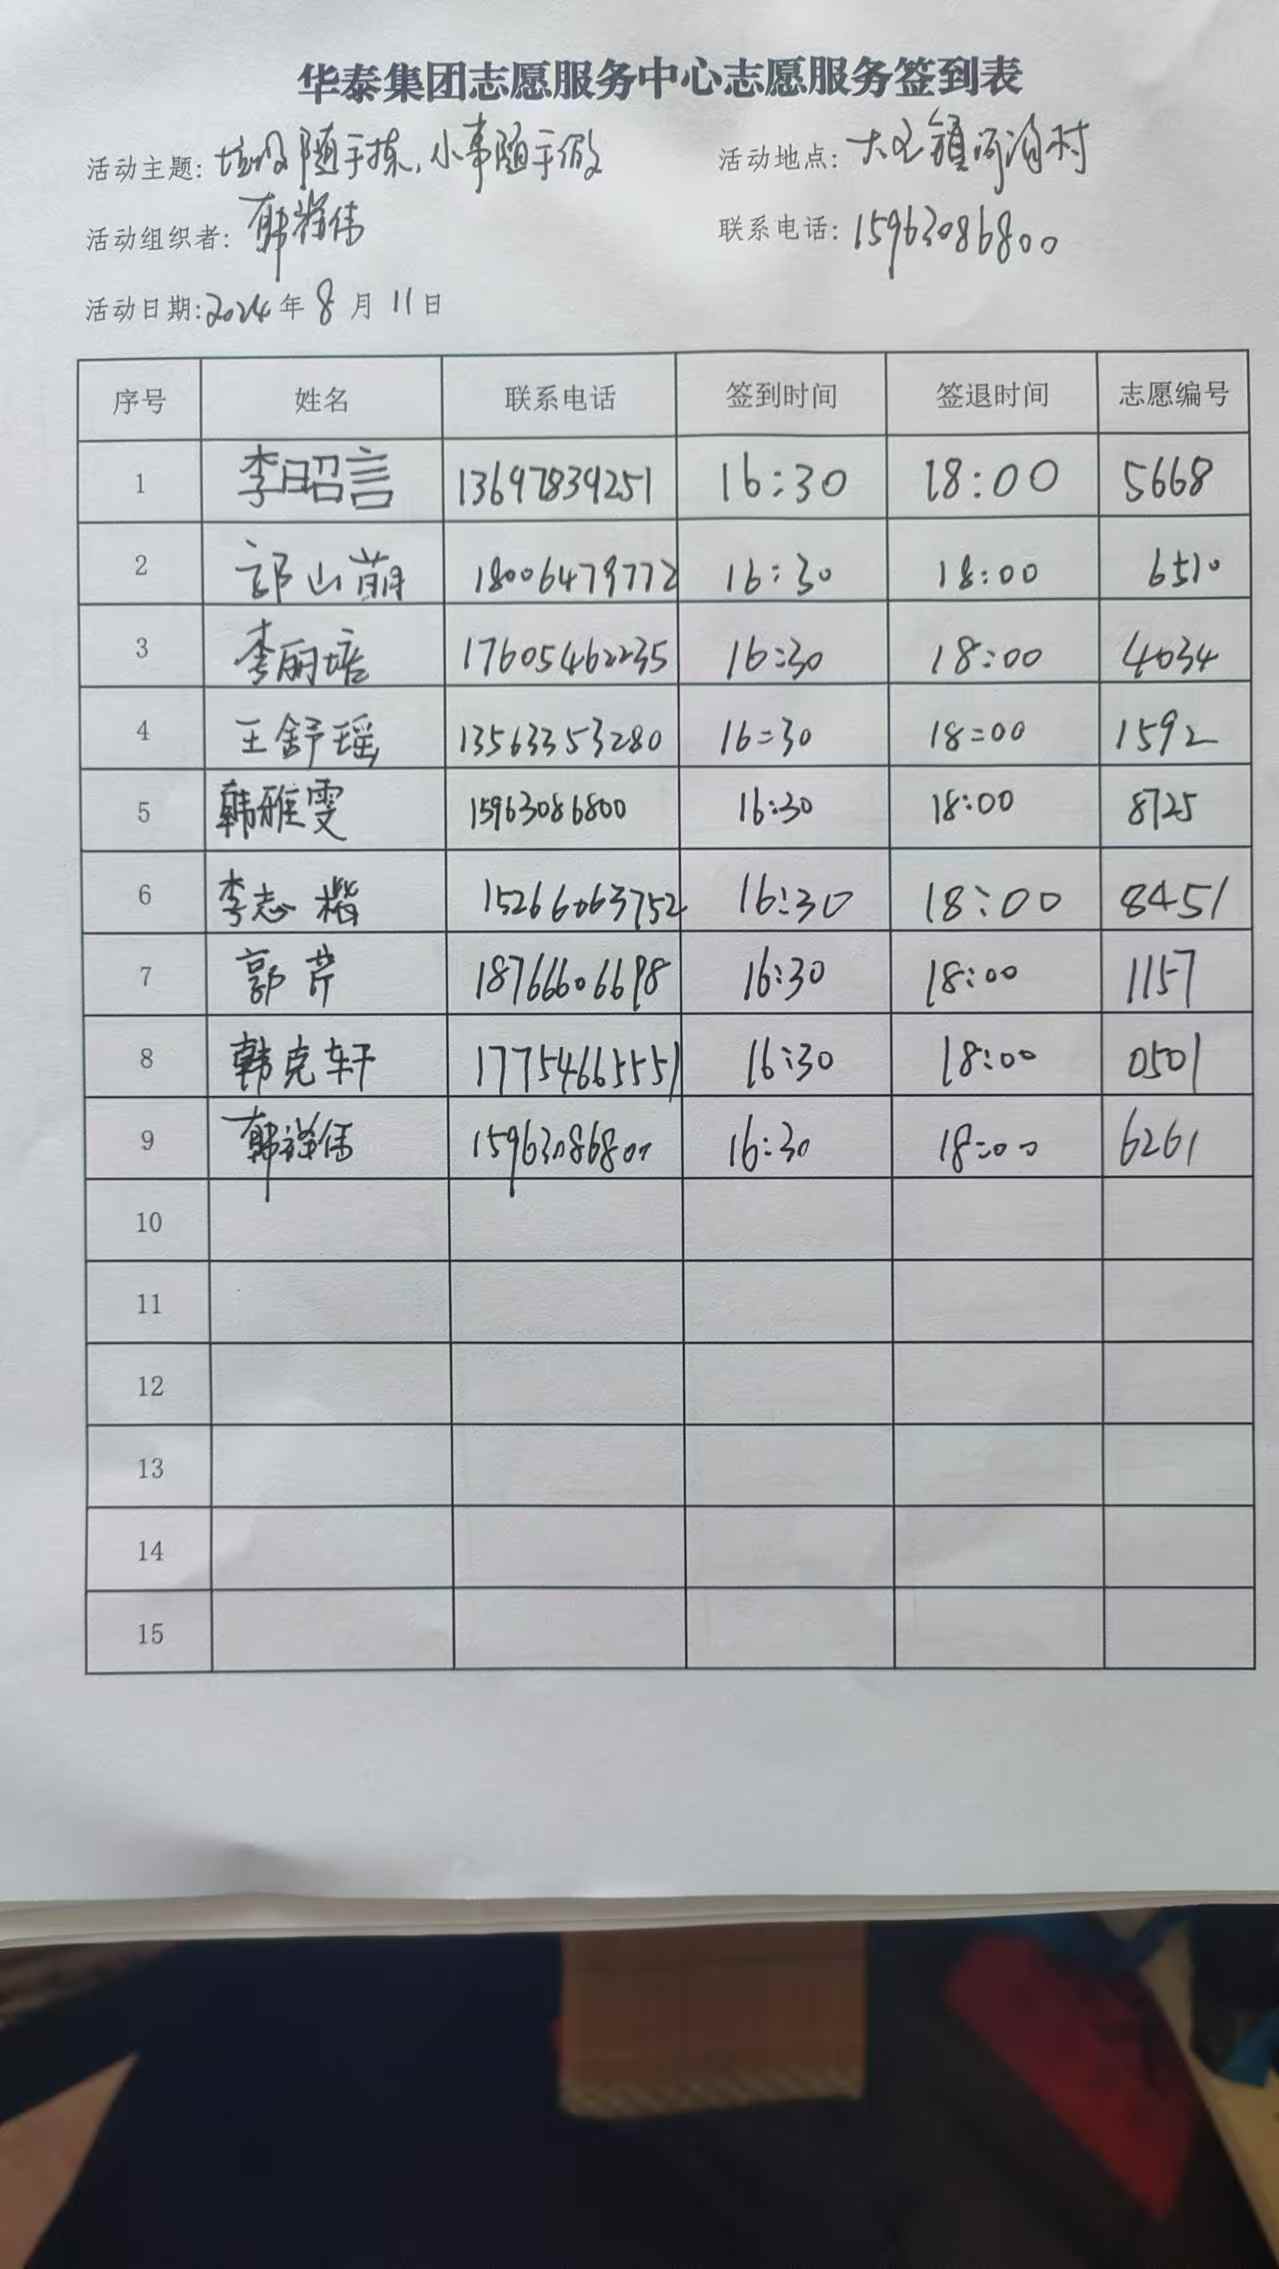 华泰集团志愿服务中心志愿服务签到表
活动主题: 垃圾随手拣,小事随手做 活动地点: 大王镇河沟村
活动组织者: 韩祥伟 联系电话: 15963086800
活动日期: 2024年 8 月 11 日
序号 姓名 联系电话 签到时间 签退时间 志愿编号
1 李昭言 13697839251 16:30 18:00 5668
2 山萌 18006479772 16:30 18:00 6510
3 李丽培 17605462235 16:30 18:00 4034
4 王舒瑶 13563353280 16:30 18:00 1592
5 韩雅雯 15963086800 16:30 18:00 8725
6 李志楷 15266063752 16:30 18:00 8451
7 郭芹 18766606698 16:30 18:00 1157
8 韩克轩 17754665551 16:30 18:00 0501
9 韩祥伟 15963086800 16:30 18:00 6261
10
11
12
13
14
15